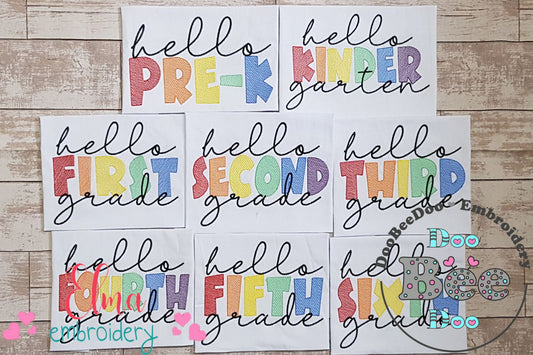 hello
PRE-K
hello
KINDER
garten
hello
FIRST
grade
hello
SECOND
grade
hello
THIRD
grade
hello
FOURTH
grade
hello
FIFTH
grade
hello
SIXTH
grade
Elma
embroidery
DooBeeDoo Embroidery
Doo
Bee
Doo